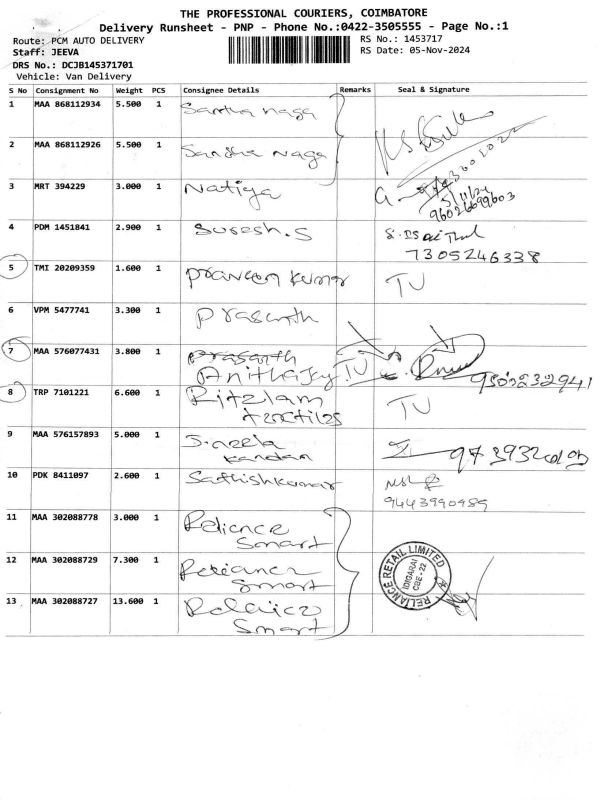 THE PROFESSIONAL COURIERS, COIMBATORE
Delivery Runsheet - PNP - Phone No.:0422-3505555 - Page No.:1
Route: PCM AUTO DELIVERY
RS No.: 1453717
Staff: JEEVA
RS Date: 05-Nov-2024
DRS No.: DCJB145371701
Vehicle: Van Delivery
S No Consignment No Weight PCS Consignee Details Remarks Seal & Signature
1 MAA 868112934 5.500 1 Santha naga
2 MAA 868112926 5.500 1 Sandha Naga
3 MRT 394229 3.000 1 Natiya
96026699603
4 PDM 1451841 2.900 1 Suresh.S
7305246338
5 TMI 20209359 1.600 1 Praveen Kumar TU
6 VPM 5477741 3.300 1 Prasanth
7 MAA 576077431 3.800 1 Prasanth
Anitha TU
8 TRP 7101221 6.600 1 Ritzlam TU
9 MAA 576157893 5.000 1 S.neela
kandan
10 PDK 8411097 2.600 1 Sathishkumar
9443990989
11 MAA 302088778 3.000 1 Relience
Smart
12 MAA 302088729 7.300 1 Relience
Smart
RELIANCE RETAIL LIMITED
IDIGARAI
CBE - 22
13 MAA 302088727 13.600 1
Smart